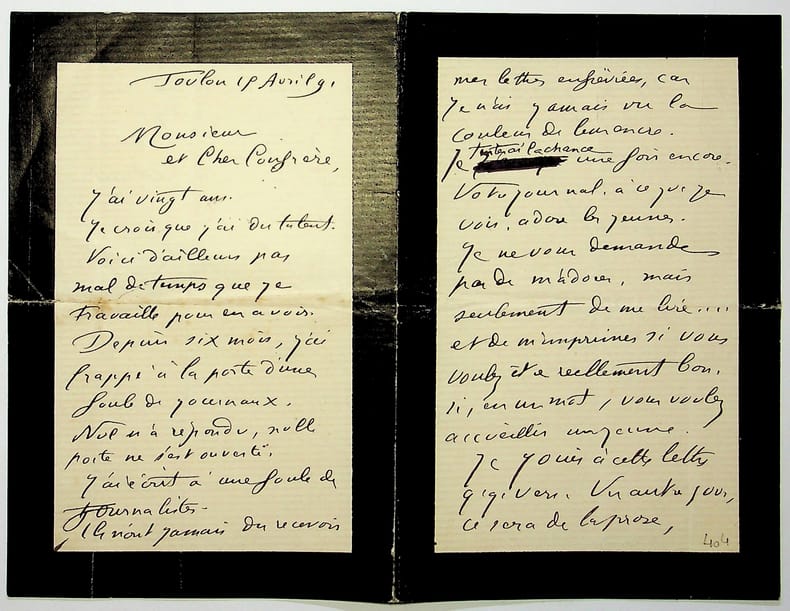 Toulon 15 Avril 91
Monsieur
et Cher Confrère,
J'ai vingt ans.
Je crois que j'ai du talent.
Voici d'ailleurs pas
mal de temps que je
travaille pour en avoir.
Depuis six mois, j'ai
frappé à la porte d'une
foule de journaux.
Nul n'a répondu, nulle
porte ne s'est ouverte.
J'ai écrit à une foule de
Journalistes.
Ils n'ont jamais du recevoir
mes lettres enfiévrées, car
je n'ai jamais vu la
couleur de leur encre.
Je tenterai la chance une fois encore.
Votre journal, à ce que je
vois, adore les jeunes.
Je ne vous demande
pas de m'adorer, mais
seulement de me lire....
et de m'imprimer si vous
voulez être réellement bon.
si, en un mot, vous voulez
accueillir un jeune.
Je joins à cette lettre
qq vers. Un autre jour,
ce sera de la prose,
404